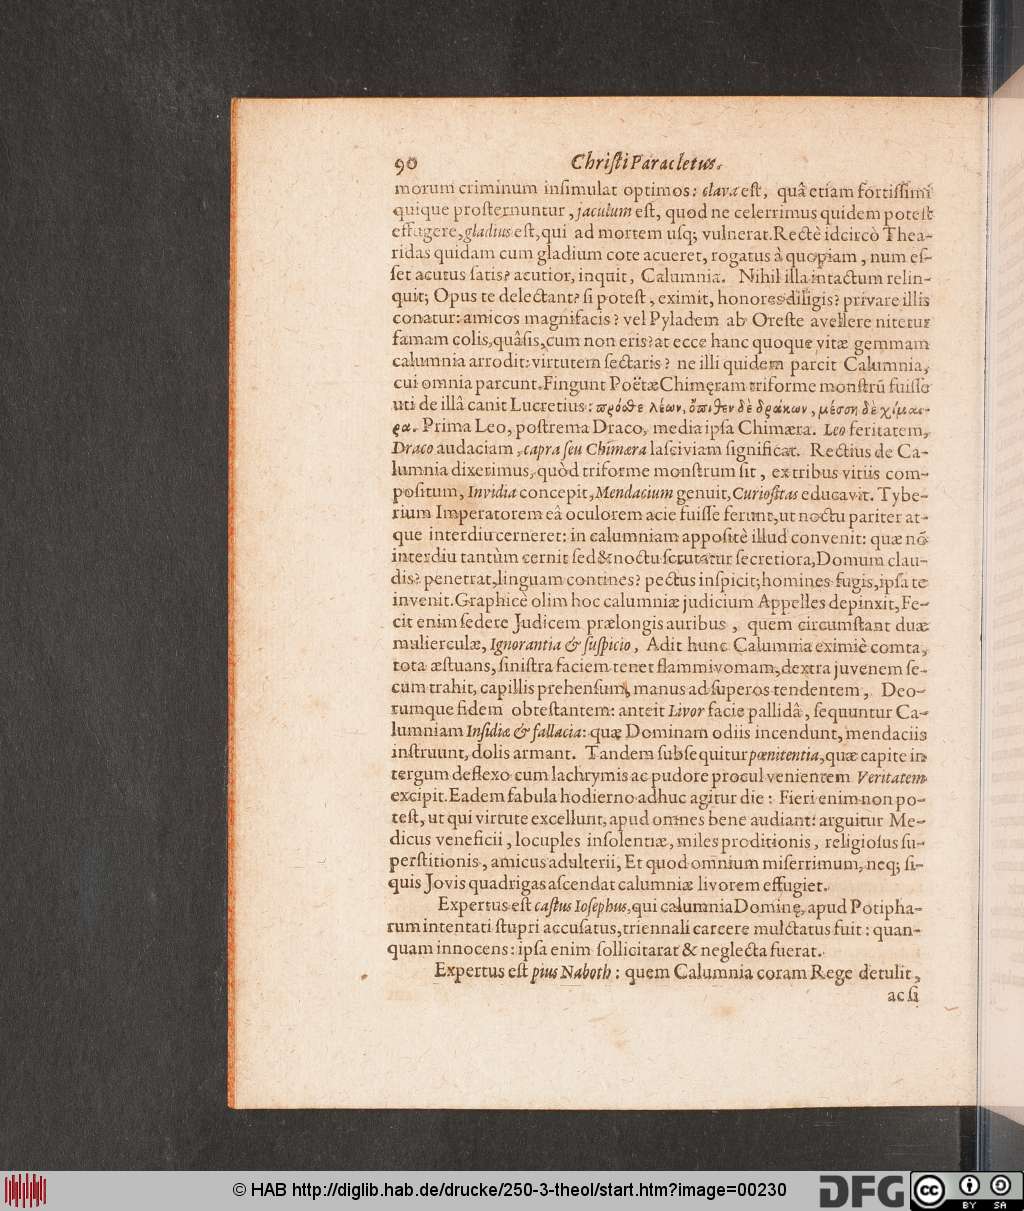 90 Christi Paracletus.
morum criminum insimulat optimos: clava est, quâ etiam fortissimi
quique prosternuntur, jaculum est, quod ne celerrimus quidem potest
effugere, gladius est, qui ad mortem usq; vulnerat. Rectè idcircò Thea-
ridas quidam cum gladium cote acueret, rogatus à quopiam, num es-
set acutus satis? acutior, inquit, Calumnia. Nihil illa intactum relin-
quit; Opus te delectant? si potest, eximit, honores diligis? privare illis
conatur: amicos magnifacis? vel Pyladem ab Oreste avellere nitetur
famam colis, quâ sis, cum non eris? at ecce hanc quoque vitæ gemmam
calumnia arrodit: virtutem sectaris? ne illi quidem parcit Calumnia,
cui omnia parcunt. Fingunt Poëtæ Chimęram triforme monstrū fuisse
uti de illâ canit Lucretius: πρόσθε λέων, ὄπιθεν δὲ δράκων, μέσση δὲ χίμαι-
ρα. Prima Leo, postrema Draco, media ipsa Chimæra. Leo feritatem,
Draco audaciam, capra seu Chimæra lasciviam significat. Rectius de Ca-
lumnia dixerimus, quòd triforme monstrum sit, ex tribus vitiis com-
positum, Invidia concepit, Mendacium genuit, Curiositas educavit. Tybe-
rium Imperatorem eâ oculorem acie fuisse ferunt, ut noctu pariter at-
que interdiu cerneret: in calumniam appositè illud convenit: quæ nō
interdiu tantùm cernit sed & noctu scrutatur secretiora, Domum clau-
dis? penetrat, linguam contines? pectus inspicit; homines fugis, ipsa te
invenit. Graphicè olim hoc calumniæ judicium Appelles depinxit, Fe-
cit enim sedere Judicem prælongis auribus, quem circumstant duæ
mulierculæ, Ignorantia & suspicio, Adit hunc Calumnia eximiè comta,
tota æstuans, sinistra faciem tenet flammivomam, dextra juvenem se-
cum trahit, capillis prehensum, manus ad superos tendentem, Deo-
rumque fidem obtestantem: anteit Livor facie pallidâ, sequuntur Ca-
lumniam Insidiæ & fallacia: quę Dominam odiis incendunt, mendaciis
instruunt, dolis armant. Tandem subsequitur pœnitentia, quæ capite in
tergum deflexo cum lachrymis ac pudore procul venientem Veritatem
excipit. Eadem fabula hodierno adhuc agitur die: Fieri enim non po-
test, ut qui virtute excellunt, apud omnes bene audiant: arguitur Me-
dicus veneficii, locuples insolentiæ, miles proditionis, religiosus su-
perstitionis, amicus adulterii, Et quod omnium miserrimum, neq; si-
quis Jovis quadrigas ascendat calumniæ livorem effugiet.
Expertus est castus Iosephus, qui calumnia Dominę, apud Potipha-
rum intentati stupri accusatus, triennali carcere mulctatus fuit: quan-
quam innocens: ipsa enim sollicitarat & neglecta fuerat.
Expertus est pius Naboth: quem Calumnia coram Rege detulit,
ac si
© HAB http://diglib.hab.de/drucke/250-3-theol/start.htm?image=00230
DFG
cc BY SA